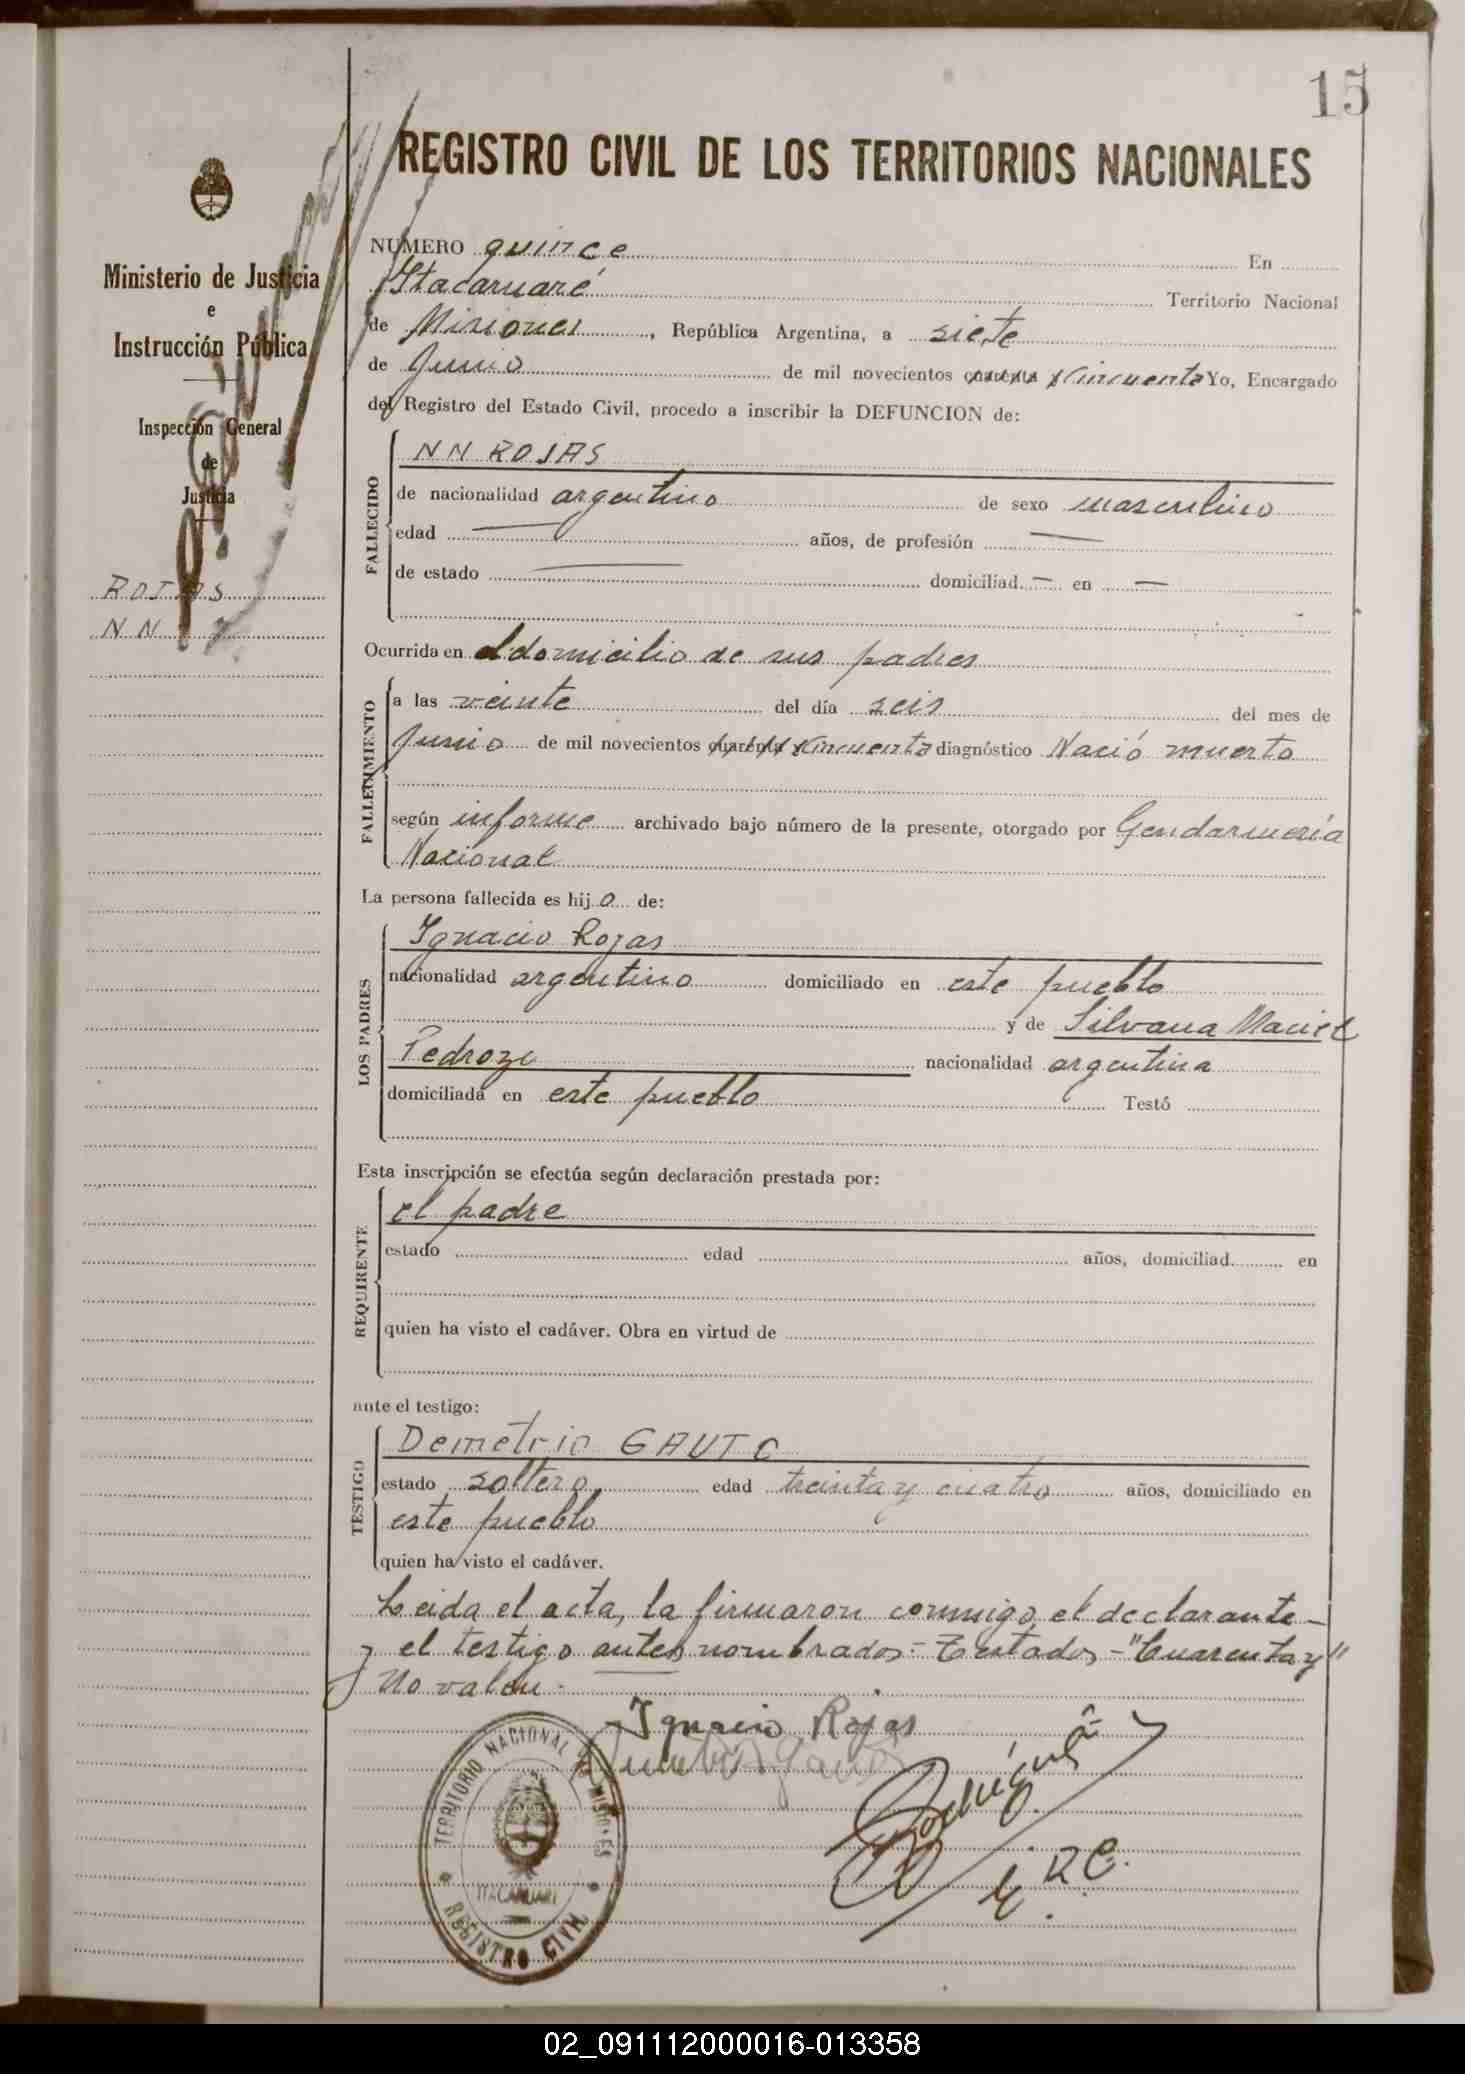 15
REGISTRO CIVIL DE LOS TERRITORIOS NACIONALES
Ministerio de Justicia
e
Instrucción Pública
Inspección General
de
Justicia
ROJAS
NN
NUMERO quince En
Itacaruaré Territorio Nacional
de Misiones, República Argentina, a siete
de Junio de mil novecientos cuarenta y cincuenta Yo, Encargado
del Registro del Estado Civil, procedo a inscribir la DEFUNCION de:
FALLECIDO
NN ROJAS
de nacionalidad argentino de sexo masculino
edad — años, de profesión —
de estado — domiciliad — en —
Ocurrida en el domicilio de sus padres
FALLECIMIENTO
a las veinte del día seis del mes de
Junio de mil novecientos cuarenta y cincuenta diagnóstico Nació muerto
según informe archivado bajo número de la presente, otorgado por Gendarmería
Nacional
La persona fallecida es hijo de:
LOS PADRES
Ignacio Rojas
nacionalidad argentino domiciliado en este pueblo
y de Silvana Maciel
Pedrozo nacionalidad argentina
domiciliada en este pueblo Testó
Esta inscripción se efectúa según declaración prestada por:
REQUIRENTE
el padre
estado edad años, domiciliad en
quien ha visto el cadáver. Obra en virtud de
ante el testigo:
TESTIGO
Demetrio GAUTO
estado soltero edad treinta y cuatro años, domiciliado en
este pueblo
quien ha visto el cadáver.
Leida el acta, la firmaron conmigo el declarante
y el testigo antes nombrados = Testados - "Cuarenta y"
No valen.
Ignacio Rojas
E.R.C.
TERRITORIO NACIONAL DE MISIONES
ITACARUARE
REGISTRO CIVIL
02_091112000016-013358